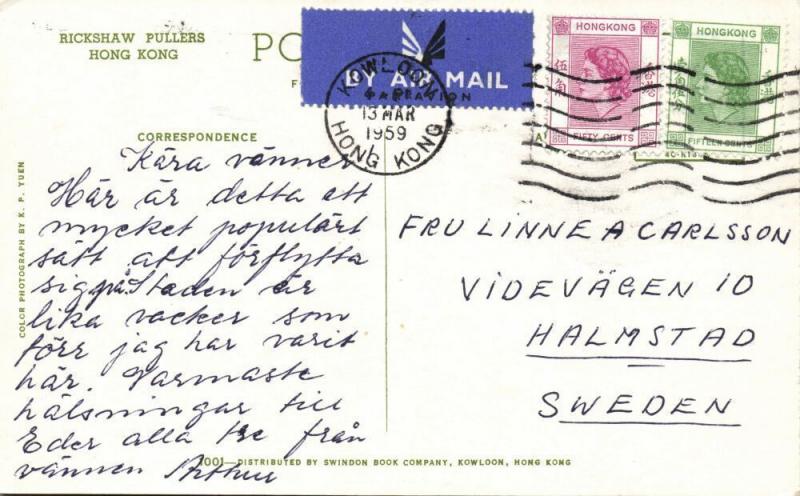 RICKSHAW PULLERS
HONG KONG
PO
BY AIR MAIL
PAR AVION
KOWLOON
13 MAR
1959
HONG KONG
HONGKONG
伍角
香港
FIFTY CENTS
HONGKONG
FIFTEEN CENTS
CORRESPONDENCE
Kära vänner
Här är detta ett
mycket populärt
sätt att förflytta
sig på. Staden är
lika vacker som
förr jag har varit
här. Varmaste
hälsningar till
Eder alla tre från
vännen Arthur
COLOR PHOTOGRAPH BY K. P. YUEN
FRU LINNEA CARLSSON
VIDEVÄGEN 10
HALMSTAD
SWEDEN
1001—DISTRIBUTED BY SWINDON BOOK COMPANY, KOWLOON, HONG KONG